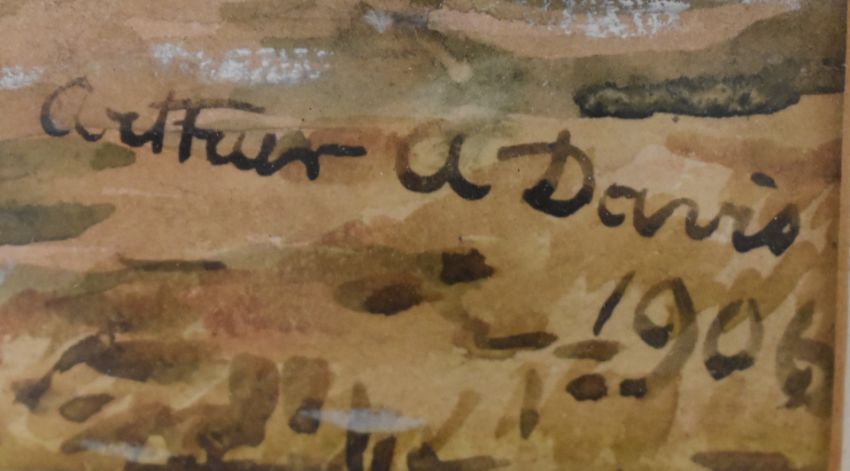 Arthur A Davis
1906